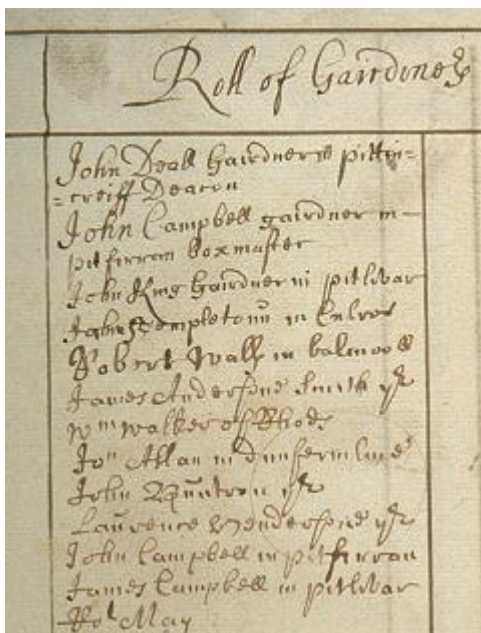 Roll of Gairdners
John Deall Gairdner in pittin=
=creiff Deacon
John Campbell gairdner in
pitfirran boxmaster
John King Gairdner in pitlivar
John Templetoun in Culros
Robert Walls in balmooll
James Andersone Smith yr
Wm Walker of Rhods
Jon Allan in dunfermline
John
Laurence Hendersone yr
John Campbell in pitfirran
James Campbell in pitlivar
Rot May